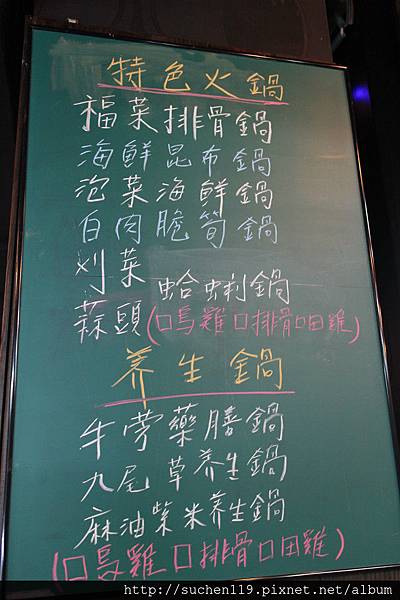 特色火鍋
福菜排骨鍋
海鮮昆布鍋
泡菜海鮮鍋
白肉脆筍鍋
刈菜
蛤蜊鍋
蒜頭
(口烏雞口排骨口田雞)
养生鍋
牛蒡藥膳鍋
九尾草养生鍋
麻油紫米养生鍋
(口烏雞口排骨口田雞)
http://suchen119.pixnet.net/album